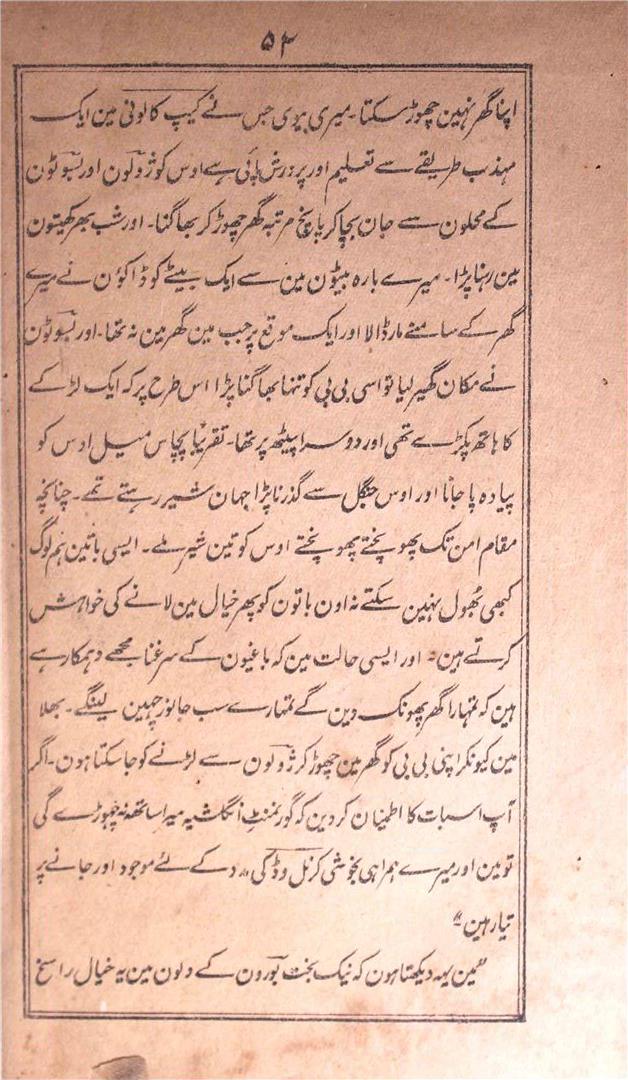 ۵۳
اپنا گھر نہین چھوڑ سکتا۔ میری بیوی جس نے کیپ کالونی مین ایک
مہذب طریقے سے تعلیم اور پرورش پائی ہے اوس کو ژولون اور بسوٹون
کے محلون سے جان بچا کر پانچ مرتبہ گھر چھوڑ کر بھاگنا۔ اور شب بھر کھیتون
مین رہنا پڑا۔ میرے بارہ بیٹون مین سے ایک بیٹے کو ڈاکوٴن نے میرے
گھر کے سامنے مار ڈالا اور ایک موقع پر جب مین گھر مین نہ تھا۔ اور بسوٹون
نے مکان گھیر لیا تو اسی بی بی کو تنہا بھاگنا پڑا اس طرح پر کہ ایک لڑکے
کا ہاتھ پکڑے تھی اور دوسرا پیٹھ پر تھا۔ تقریباً پچاس میل اوس کو
پیادہ پا جانا اور اوس جنگل سے گذرنا پڑا جہان شیر رہتے تھے۔ چنانچہ
مقام امن تک پھوپختے پھوپختے اوس کو تین شیر ملے۔ ایسی باتین ہم لوگ
کبھی بھول نہین سکتے نہ اون باتون کو پھر خیال مین لانے کی خواہش
کرتے ہین۔ اور ایسی حالت مین کہ باغیون کے سرغنا مجھے دہمکا رہے
ہین کہ تمہارا گھر پھونک دین گے تمہارے سب جانور چھین لینگے۔ بھلا
مین کیونکر اپنی بی بی کو گھر مین چھوڑ کر ژولون سے لڑنے کو جا سکتا ہون۔ اگر
آپ اسبات کا اطمینان کر دین کہ گورنمنٹ انگلشیہ میرا ساتھ نہ چھوڑے گی
تو مین اور میرے ہمراہی بخوشی کرنل وڈ کی مدد کے لئے موجود اور جانے پر
تیار ہین۔"
"مین یہہ دیکھتا ہون کہ نیک بخت بورون کے دلون مین یہ خیال راسخ